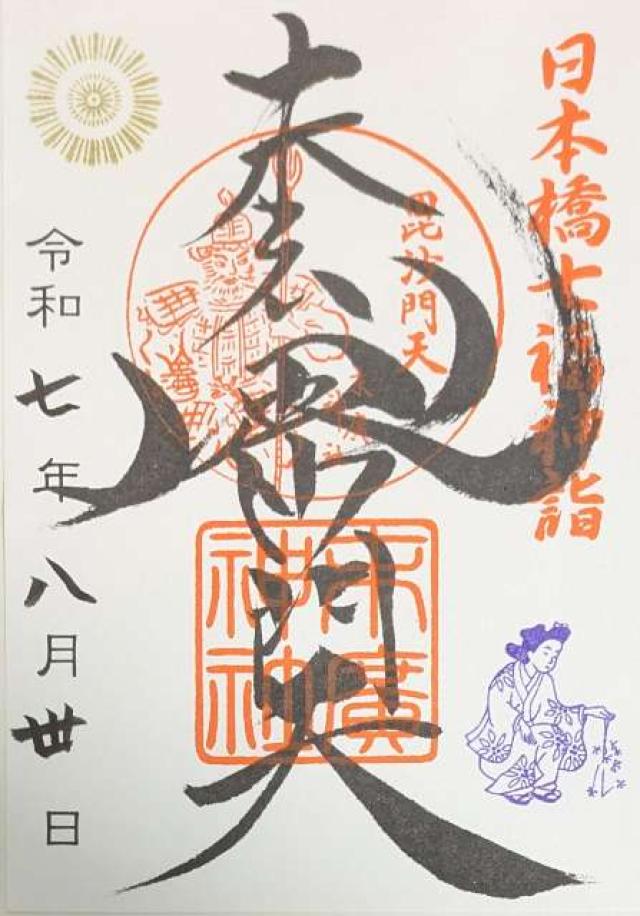 日本橋七福神詣
毘沙門天
末廣神社
毘沙門天
末廣
神社
令和七年八月丗日